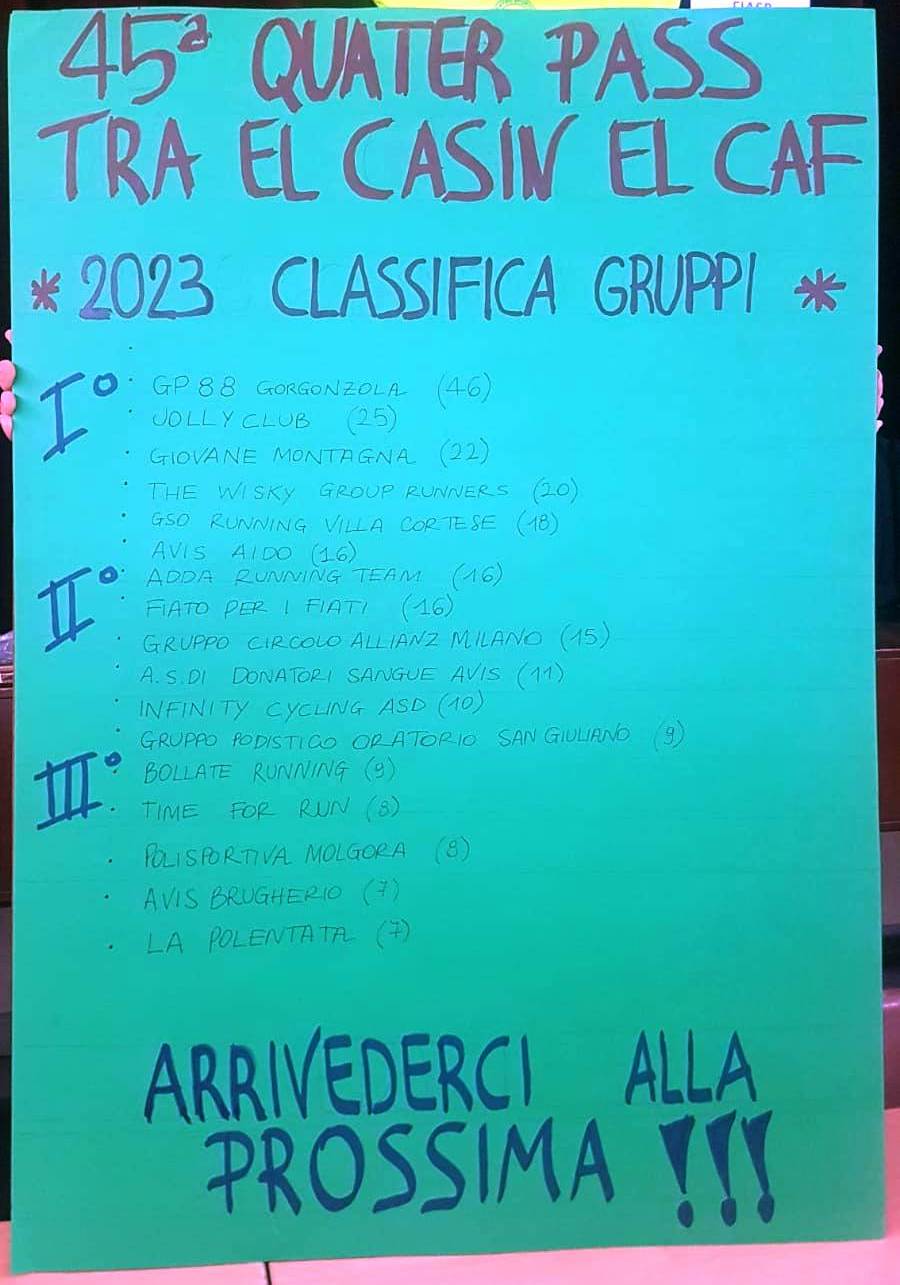 45ª QUATER PASS
TRA EL CASIN EL CAF
* 2023 CLASSIFICA GRUPPI *
I° · GP 88 GORGONZOLA (46)
· JOLLY CLUB (25)
· GIOVANE MONTAGNA (22)
· THE WISKY GROUP RUNNERS (20)
· GSO RUNNING VILLA CORTESE (18)
· AVIS AIDO (16)
II° · ADDA RUNNING TEAM (16)
· FIATO PER I FIATI (16)
· GRUPPO CIRCOLO ALLIANZ MILANO (15)
· A.S.DI DONATORI SANGUE AVIS (11)
· INFINITY CYCLING ASD (10)
· GRUPPO PODISTICO ORATORIO SAN GIULIANO (9)
III° · BOLLATE RUNNING (9)
· TIME FOR RUN (8)
· POLISPORTIVA MOLGORA (8)
· AVIS BRUGHERIO (7)
· LA POLENTATA (7)
ARRIVEDERCI ALLA
PROSSIMA !!!